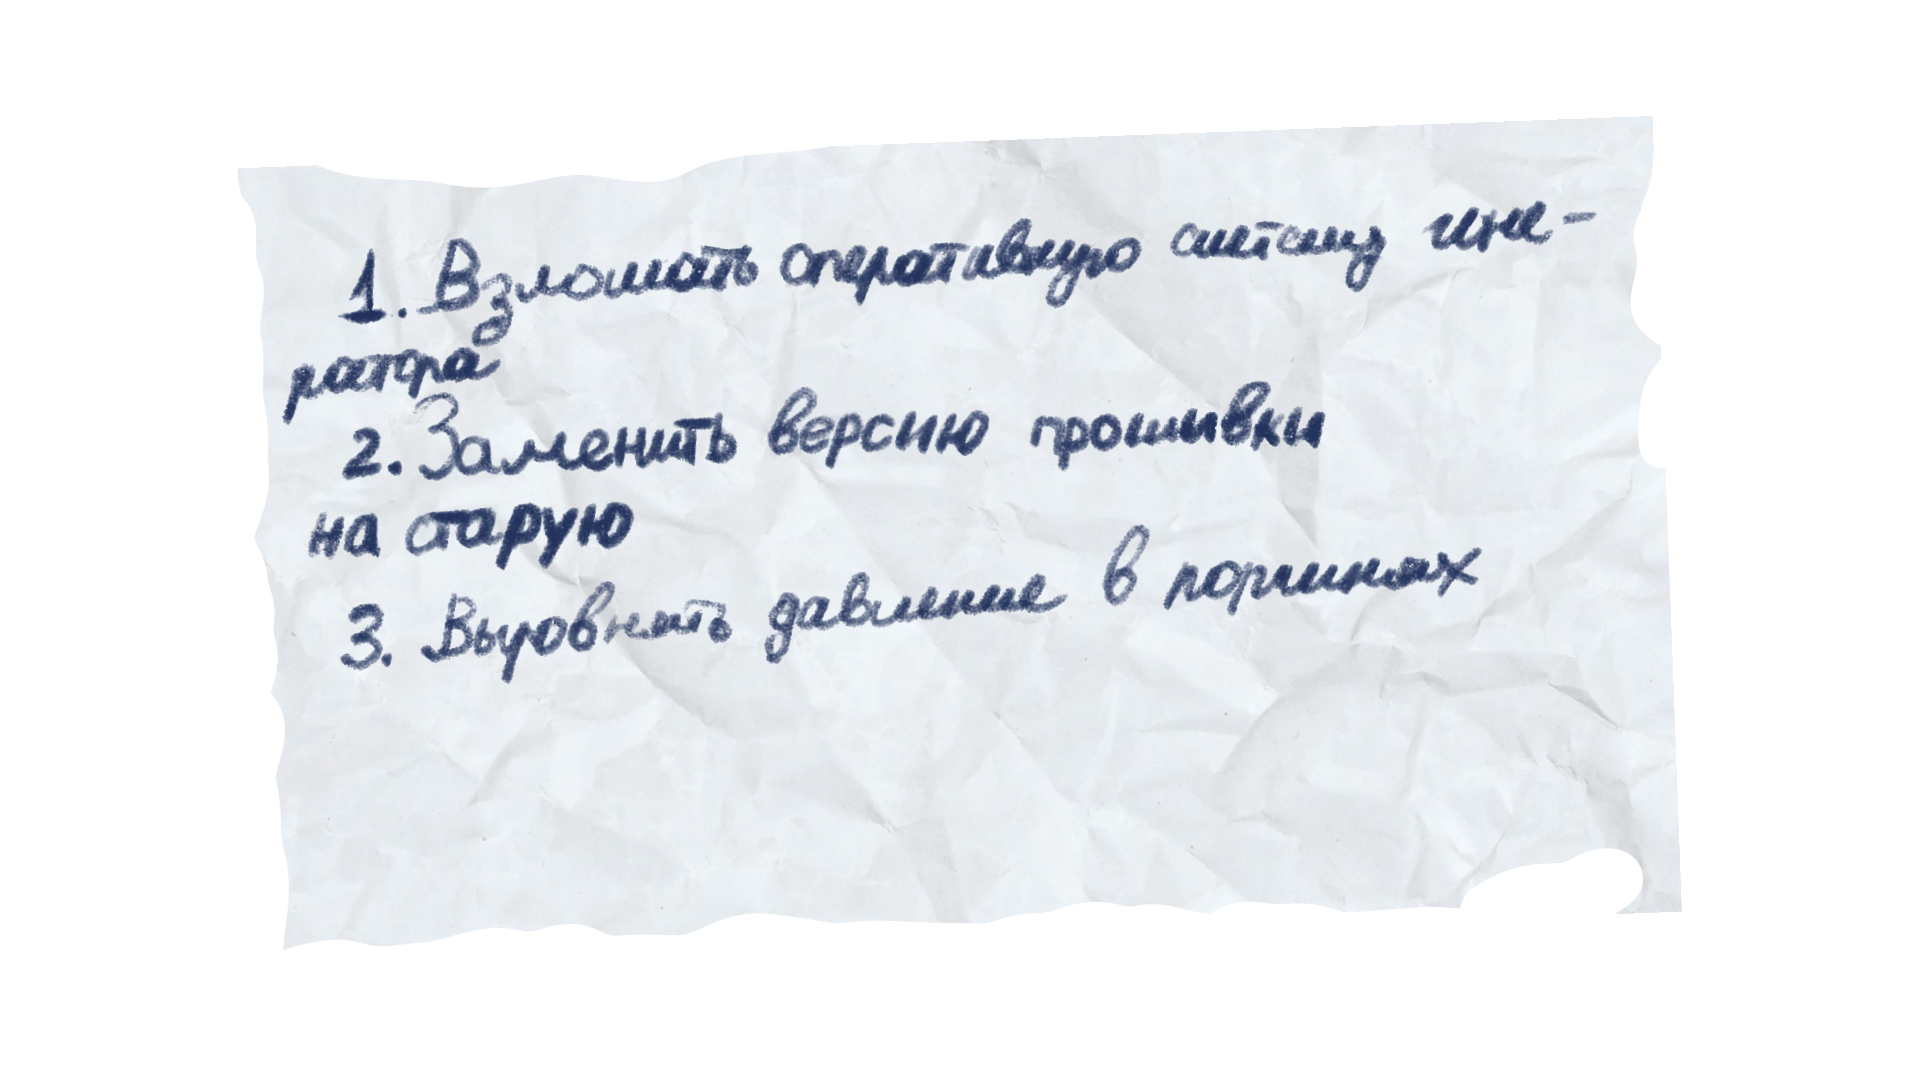 1. Взломать оперативную систему гене-
ратора
2. Заменить версию прошивки
на старую
3. Выровнать давление в поршнях